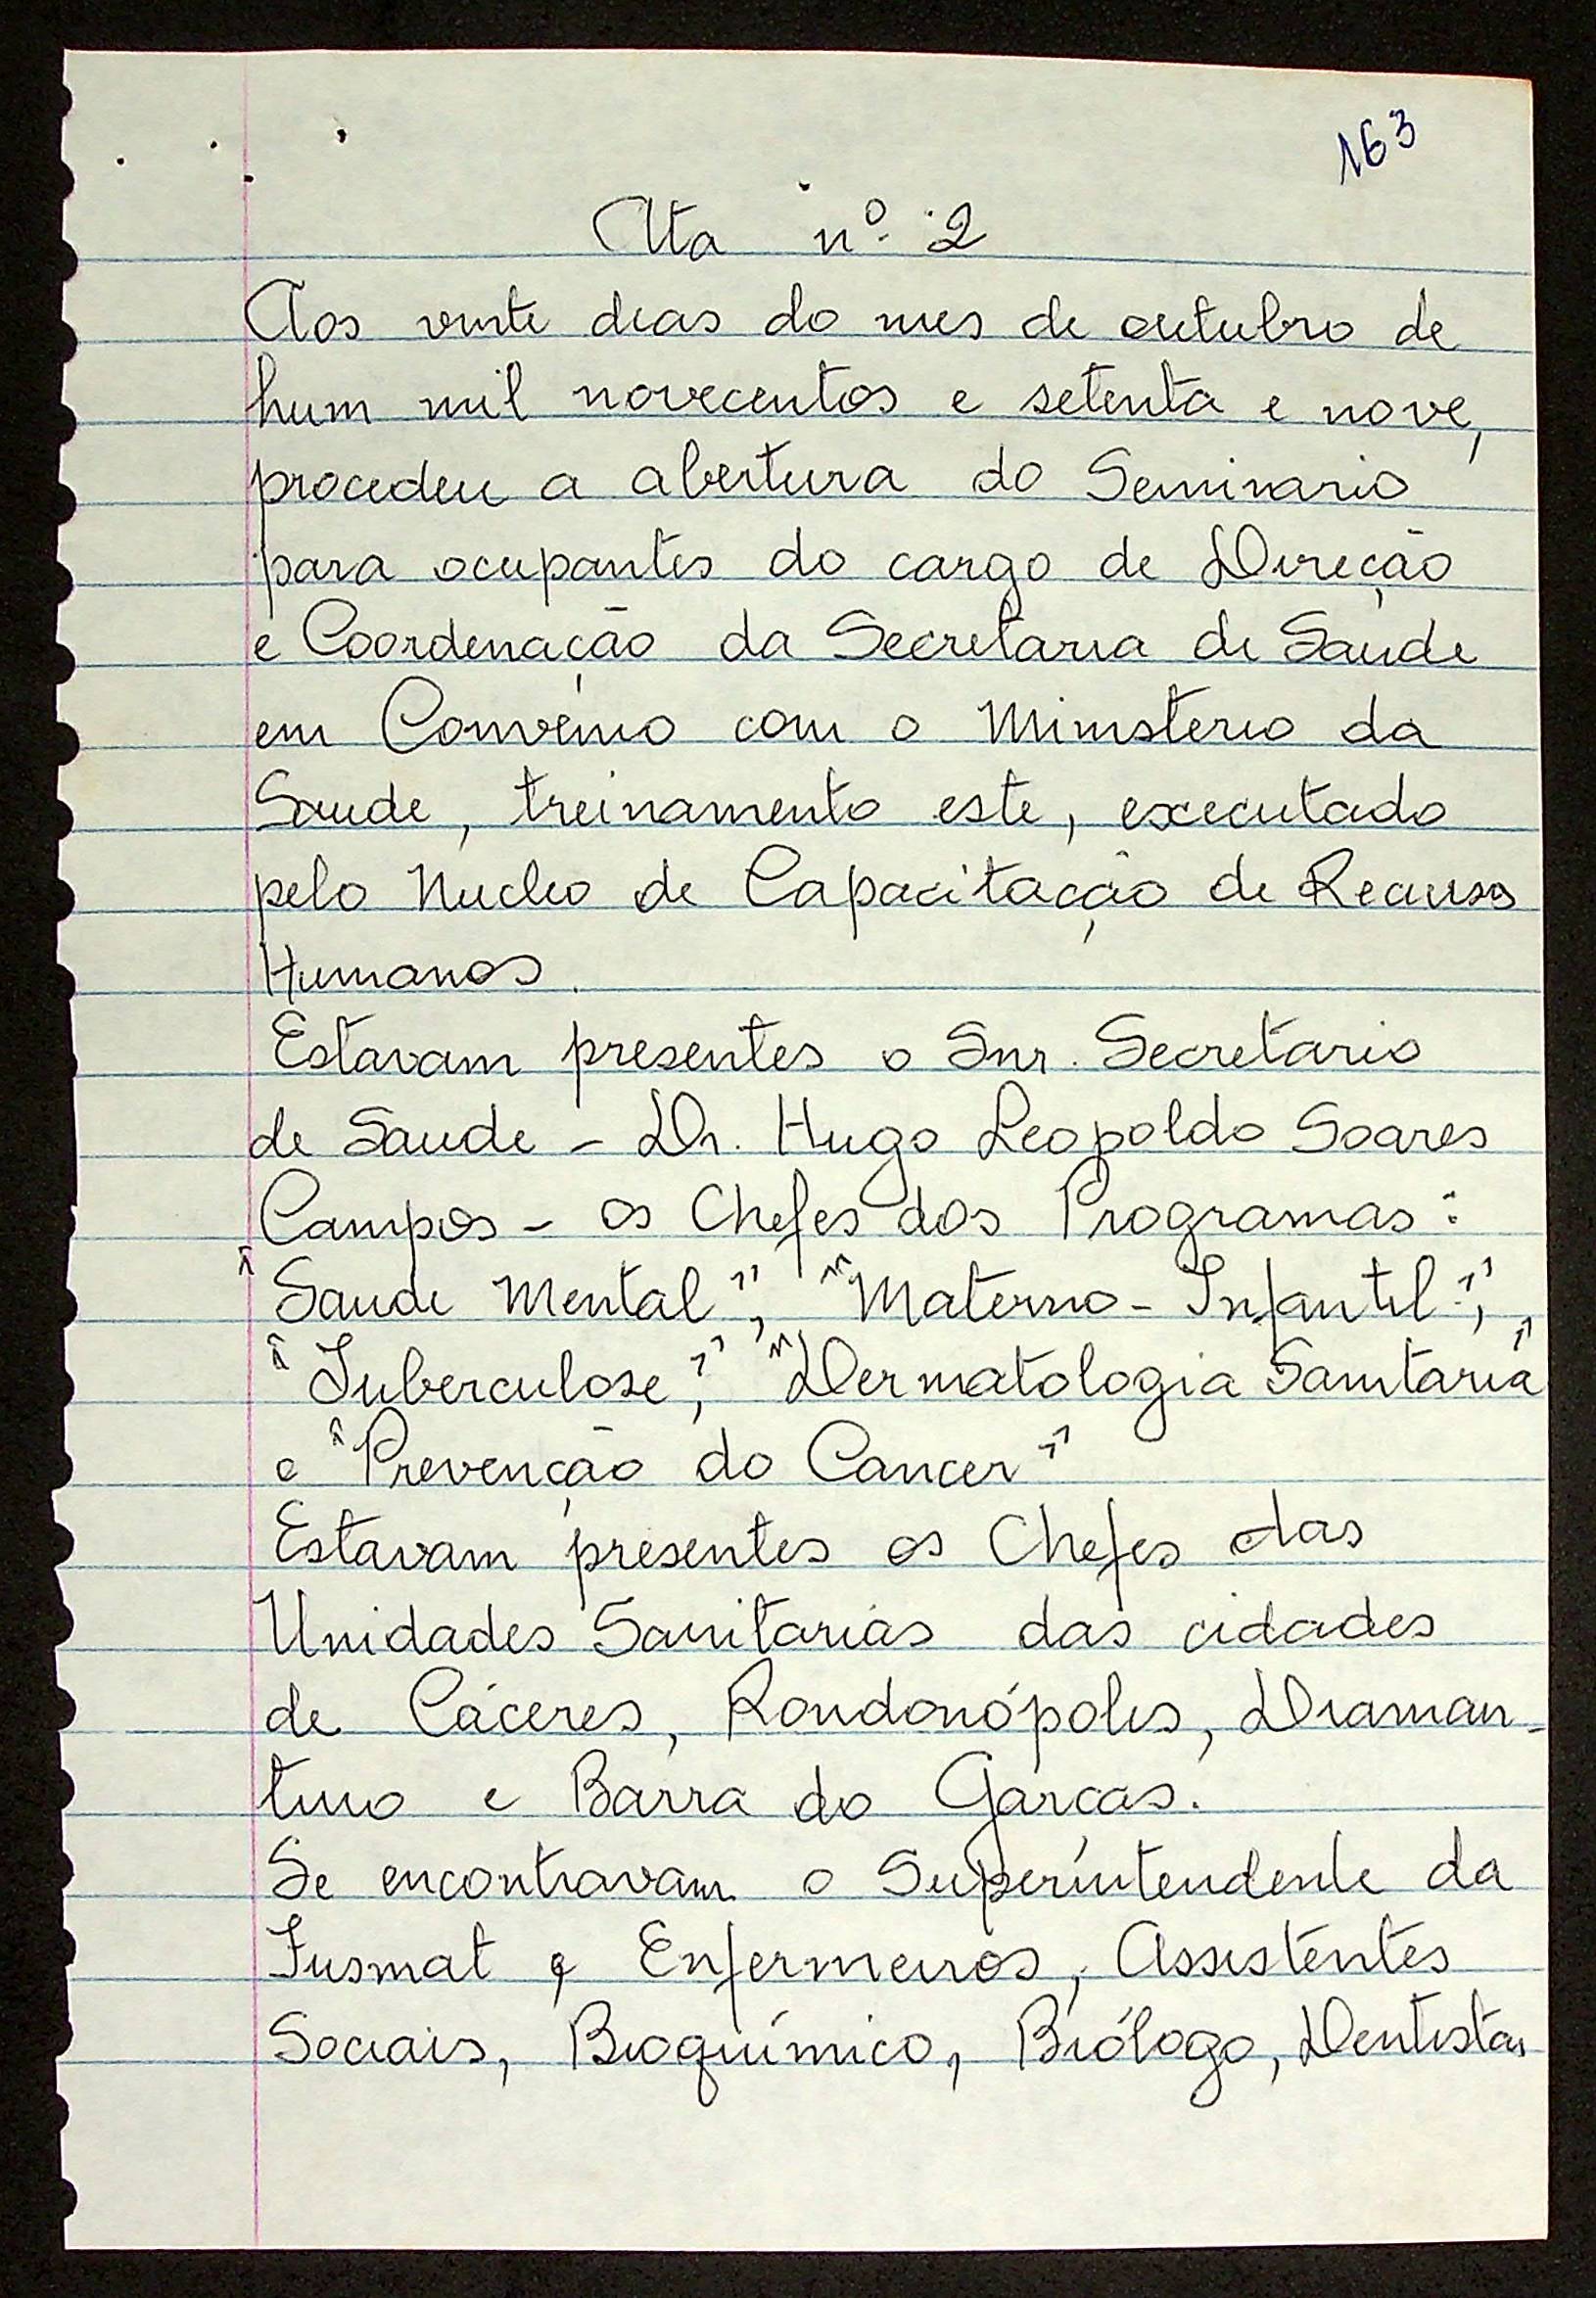 163
Ata nº 2
Aos vinte dias do mes de outubro de
hum mil novecentos e setenta e nove,
procedeu a abertura do Seminario
para ocupantes do cargo de Direção
e Coordenação da Secretaria de Saude
em Convênio com o Ministerio da
Saude, treinamento este, executado
pelo Nucleo de Capacitação de Recursos
Humanos.
Estavam presentes o Snr. Secretario
de Saude - Dr. Hugo Leopoldo Soares
Campos - os Chefes dos Programas:
"Saude Mental", "Materno-Infantil",
"Tuberculose", "Dermatologia Sanitaria"
e "Prevenção do Cancer"
Estavam presentes os Chefes das
Unidades Sanitarias das cidades
de Cáceres, Rondonópolis, Diaman-
tino e Barra do Garças.
Se encontravam o Superintendente da
Fusmat e Enfermeiros, Assistentes
Sociais, Bioquímico, Biólogo, Dentistas